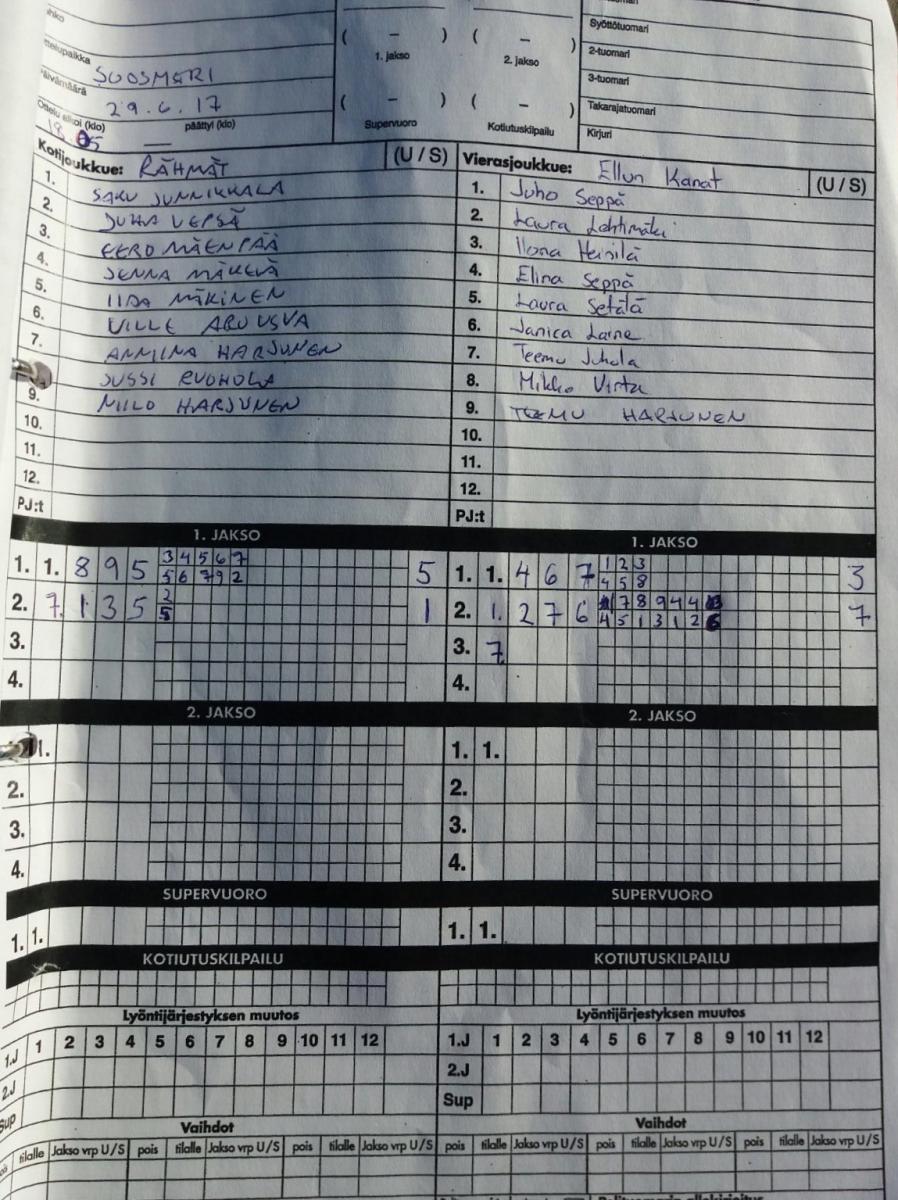 ( – ) ( – )
1. jakso 2. jakso
Syöttötuomari
2-tuomari
3-tuomari
Takarajatuomari
Kirjuri
SUOSMERI
29.6.17
päättyi (klo)
( – ) ( – )
Supervuoro Kotiutuskilpailu
Kotijoukkue: RÄHMÄT (U / S) Vierasjoukkue: Ellun Kanat (U / S)
1. SAKU JUNNIKKALA 1. Juho Seppä
2. JUHA VEPSÄ 2. Laura Lehtimäki
3. EERO MÄENPÄÄ 3. Ilona Heinilä
4. JENNA MÄKELÄ 4. Elina Seppä
5. IIDA MÄKINEN 5. Laura Setälä
6. VILLE 6. Janica Laine
7. ANNIINA HARJUNEN 7. Teemu Juhola
JUSSI RUOHOLA 8. Mikko Virta
9. NIILO HARJUNEN 9. TEEMU HARJUNEN
10. 10.
11. 11.
12. 12.
PJ:t PJ:t
1. JAKSO 1. JAKSO
1. 1. 8 9 5 3 4 5 6 7 5 1. 1. 4 6 7 1 2 3 3
5 6 7 9 2 4 5 8
2. 7. 1 3 5 2 1 2. 1. 2 7 6 7 8 9 4 4 7
5 4 5 1 3 1 2 6
3. 3. 7
4. 4.
2. JAKSO 2. JAKSO
1. 1. 1.
2. 2.
3. 3.
4. 4.
SUPERVUORO SUPERVUORO
1. 1. 1. 1.
KOTIUTUSKILPAILU KOTIUTUSKILPAILU
Lyöntijärjestyksen muutos Lyöntijärjestyksen muutos
1.J 1 2 3 4 5 6 7 8 9 10 11 12 1.J 1 2 3 4 5 6 7 8 9 10 11 12
2.J 2.J
Sup Sup
Vaihdot Vaihdot
tilalle Jakso vrp U/S pois tilalle Jakso vrp U/S pois tilalle Jakso vrp U/S pois tilalle Jakso vrp U/S pois tilalle Jakso vrp U/S pois tilalle Jakso vrp U/S